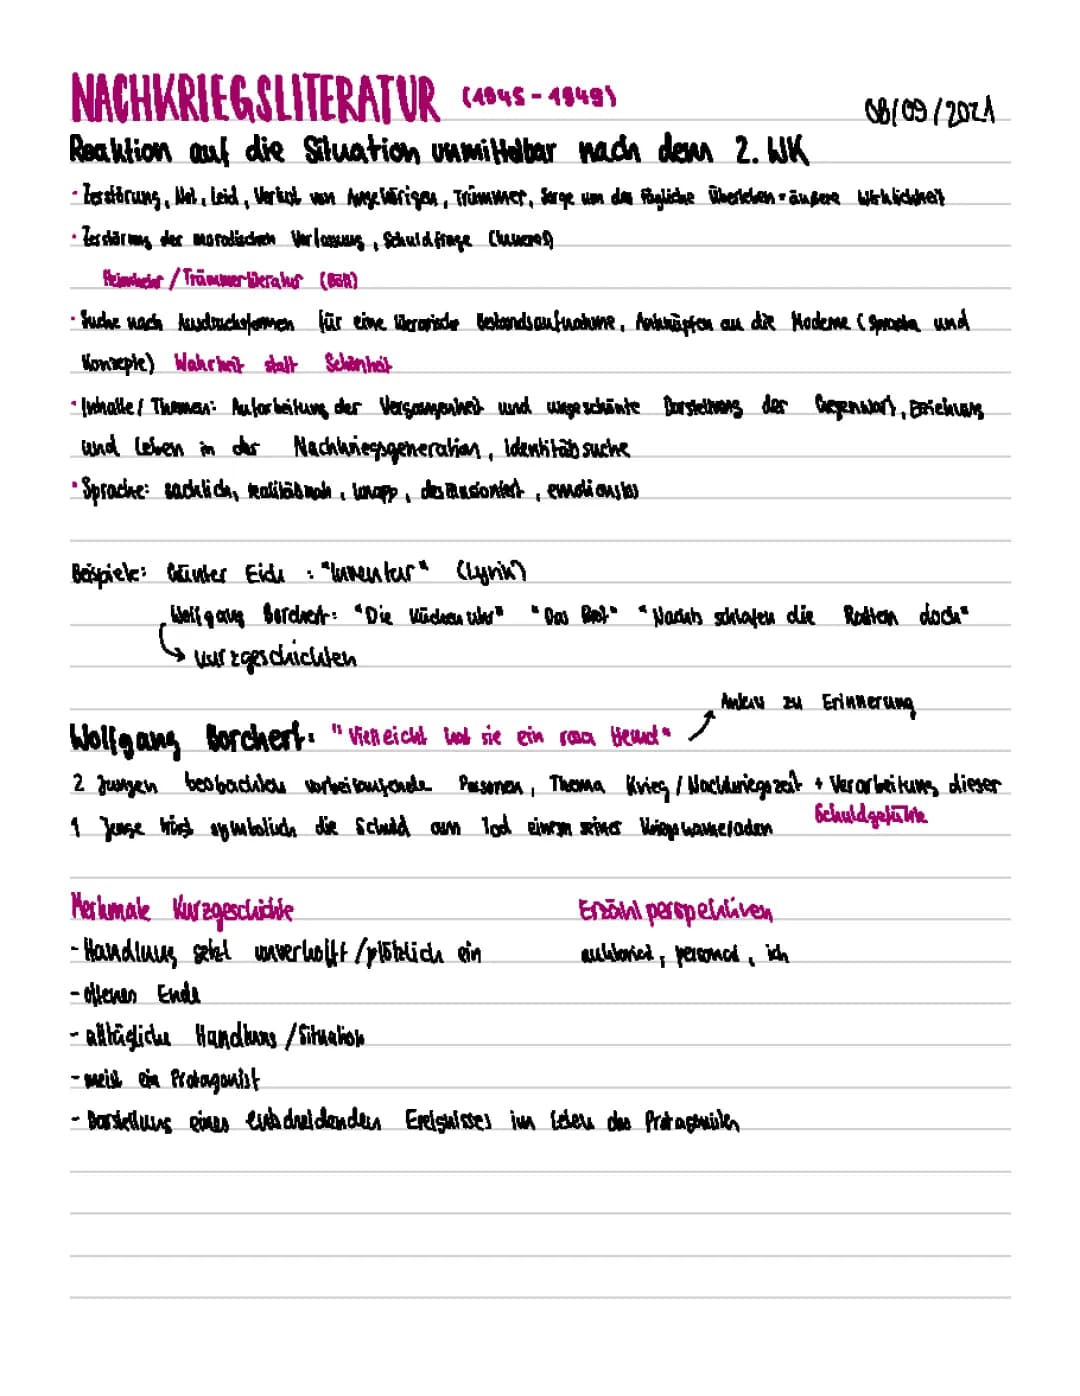 NACHKRIEGSLITERATUR (1945-1949) 08/09/2021
Reaktion auf die Situation unmittelbar nach dem 2. WK
· Zerstörung, Not, Leid, Verlust von Angehörigen, Trümmer, Sorge um das tägliche Überleben = äußere Wirklichkeit
· Zerstörung der moralischen Verfassung, Schuldfrage (Inneres)
Heimkehr / Trümmerliteratur (Böll)
· Suche nach Ausdrucksformen für eine literarische Bestandsaufnahme, Anknüpfen an die Moderne (Sprache und
Konzepte) Wahrheit statt Schönheit
· Inhalte / Themen: Aufarbeitung der Vergangenheit und ungeschönte Darstellung der Gegenwart, Erziehung
und Leben in der Nachkriegsgeneration, Identitätssuche
· Sprache: sachlich, realitätsnah, knapp, desillusioniert, emotionslos
Beispiele: Günter Eich : "Inventur" (Lyrik)
Wolfgang Borchert: "Die Küchenuhr" "Das Brot" "Nachts schlafen die Ratten doch"
Kurzgeschichten
Anlass zu Erinnerung
Wolfgang Borchert: "Vielleicht hat sie ein rosa Hemd"
2 Jungen beobachten vorbeilaufende Personen, Thema Krieg / Nachkriegszeit + Verarbeitung dieser
1 Junge trägt symbolisch die Schuld am Tod einem seiner Kriegskameraden Schuldgefühle
Merkmale Kurzgeschichte Erzählperspektiven
- Handlung setzt unverhofft / plötzlich ein auktorial, personal, ich
- offenes Ende
- alltägliche Handlung / Situation
- meist ein Protagonist
- Darstellung eines entscheidenden Ereignisses im Leben des Protagonisten